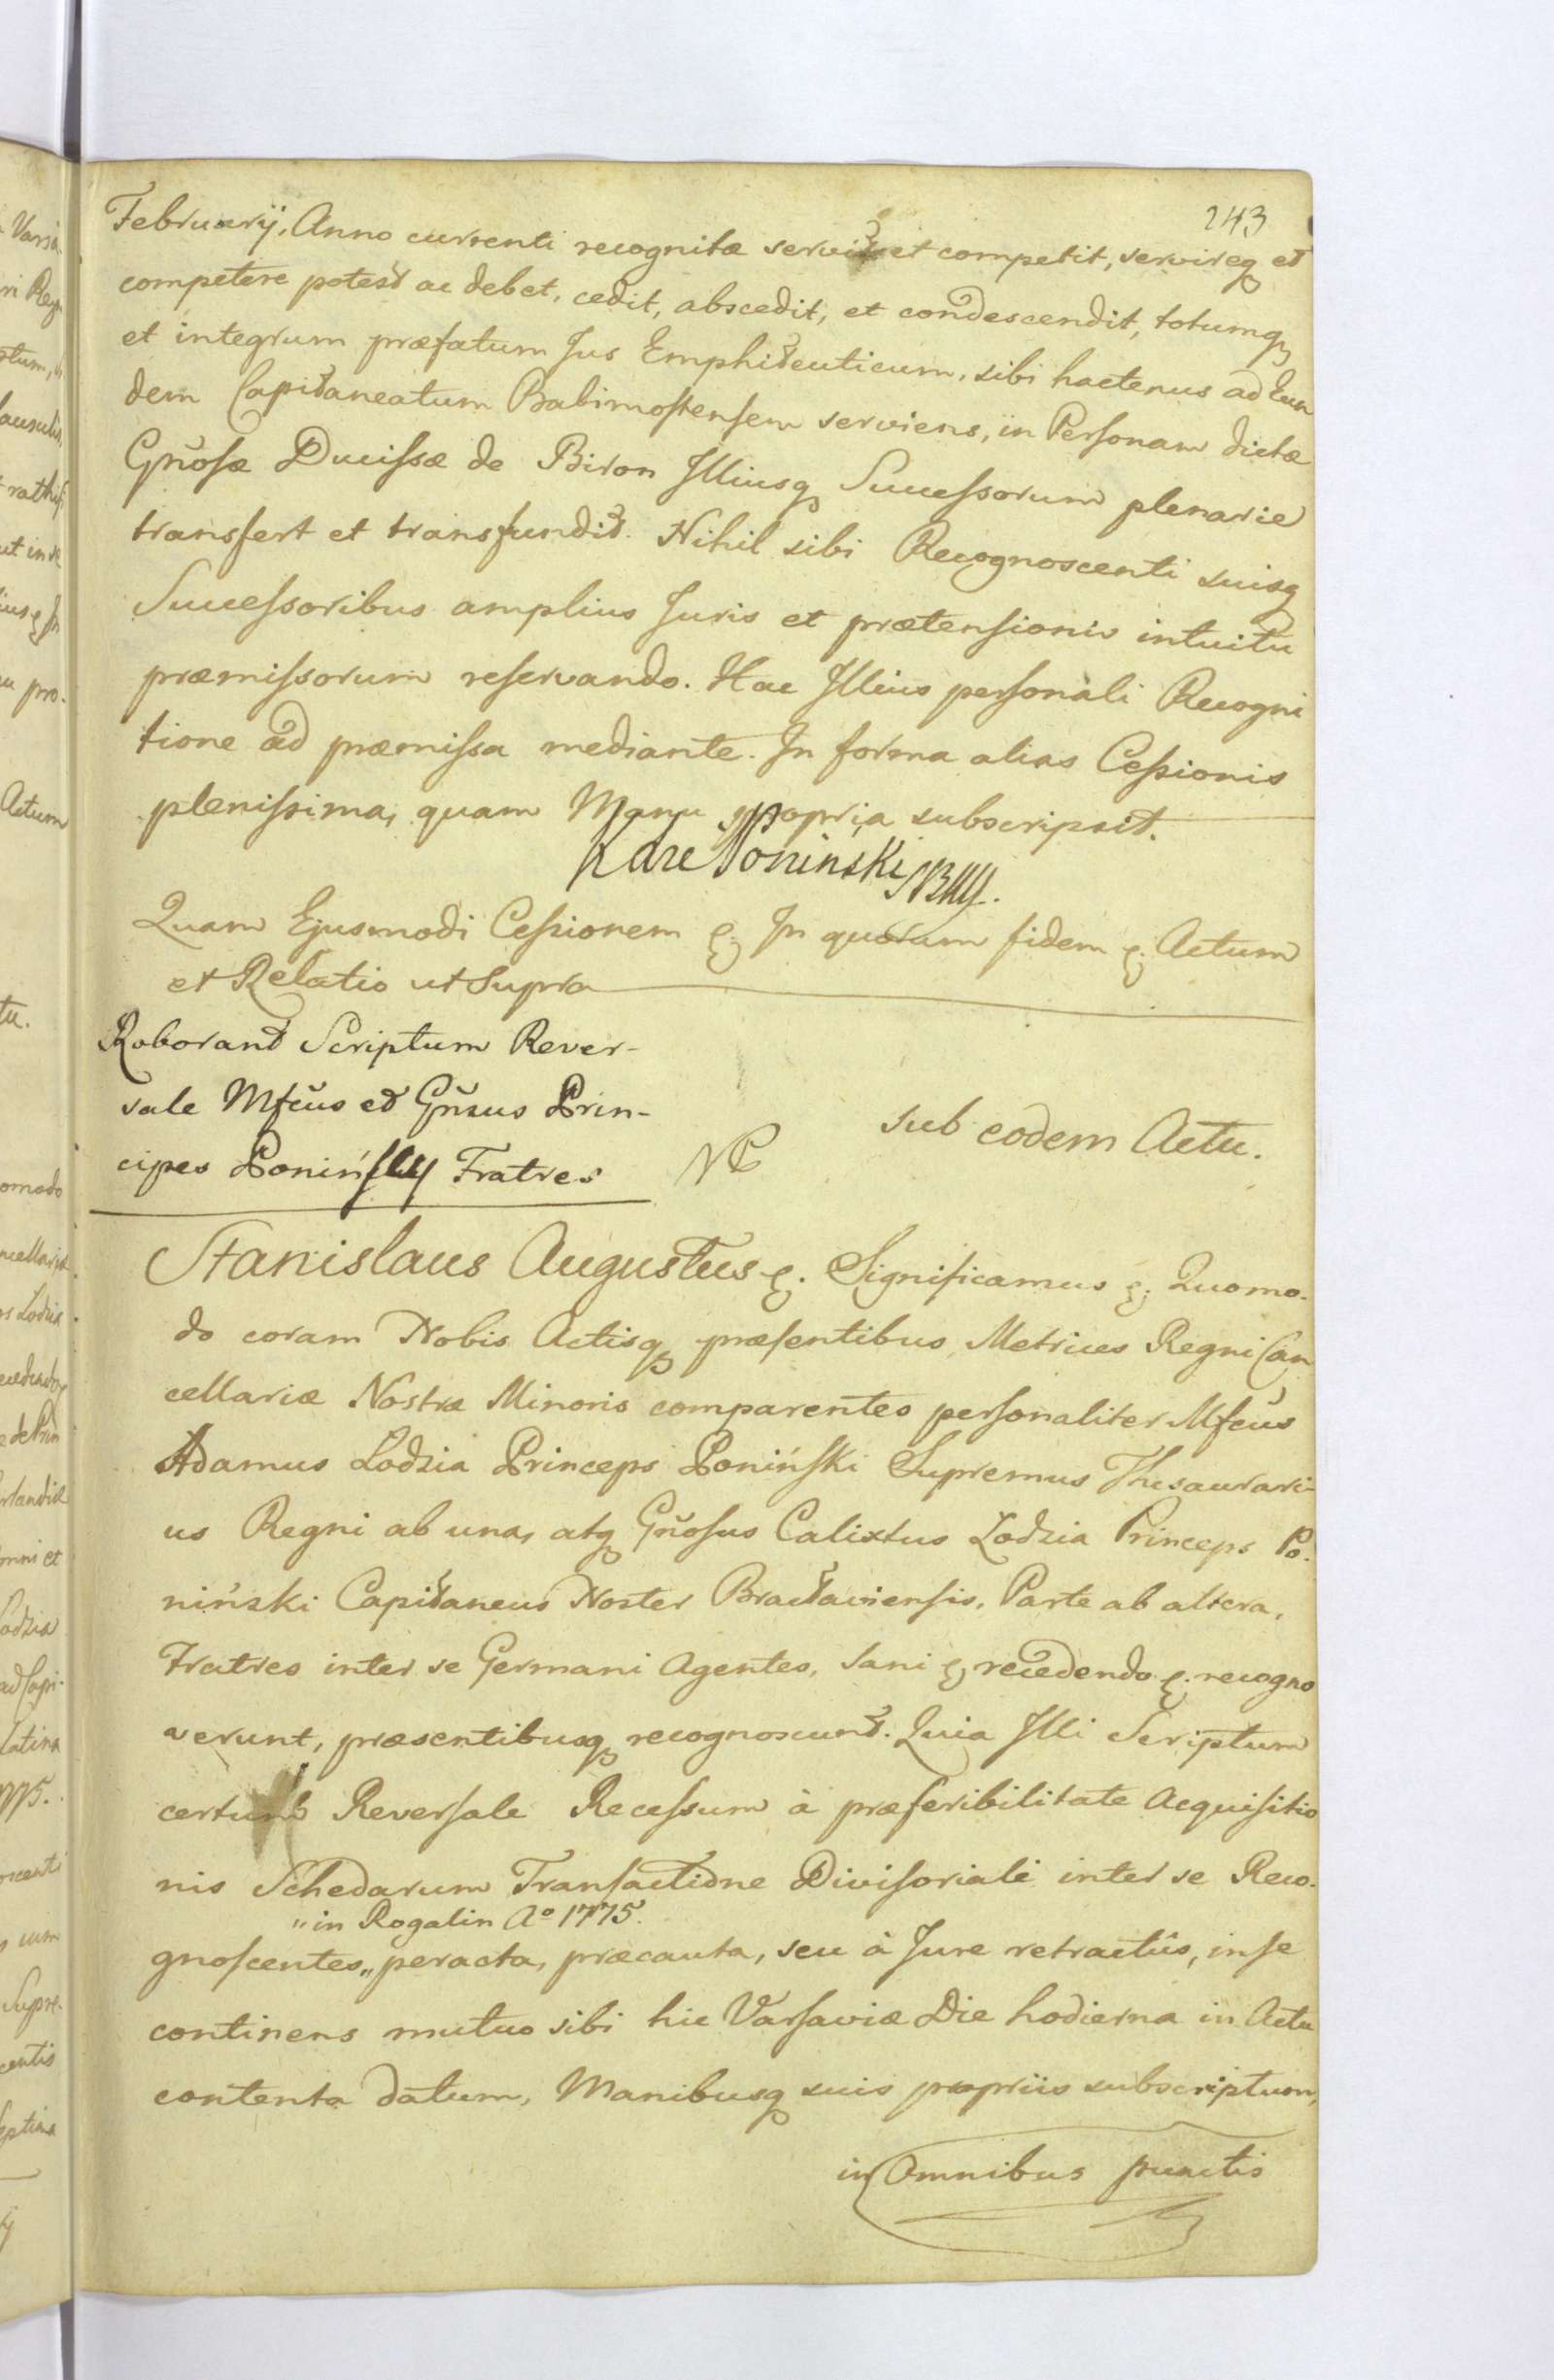 243
Februarij, Anno currenti recognitæ servit et competit, servireq et
competere potest ac debet, cedit, abscedit, et condescendit, totumq
et integrum præfatum Jus Emphiteuticum, sibi hactenus ad Eun
dem Capitaneatum Babimostensem serviens, in Personam dictæ
Gñosæ Ducissæ de Biron Illiusq Successorum plenarie
transfert et transfundit. Nihil sibi Recognoscenti suisq
Successoribus amplius Juris et prætensionis intuitu
præmissorum reservando. Hac Illius personali Recogni
tione ad præmissa mediante. In forma alias Cessionis
plenissima, quam Manu propria subscripsit.
Poninski
Quam Ejusmodi Cessionem &. In quorum fidem &. Actum
et Relatio ut supra
Roborant Scriptum Rever-
sale Mfcus et Gñsus Prin-
cipes Poninscy Fratres
sub eodem Actu.
Stanislaus Augustus &. Significamus &. Quomo-
do coram Nobis Actisq præsentibus Metrices Regni Can
cellariæ Nostræ Minoris comparentes personaliter Mfcus
Adamus Lodzia Princeps Poniński Supremus Thesaurari-
us Regni ab una, atq Gñosus Calixtus Lodzia Princeps Po-
niński Capitaneus Noster Bractaviensis, Parte ab altera,
Fratres inter se Germani Agentes, Sani & recedendo &. recogno
verunt, præsentibusq recognoscunt. Quia Illi Scriptum
certum Reversale Recessum à præferibilitate Acquisitio
nis Schedarum Transactione Divisoriali inter se Reco-
„in Rogalin Aº 1775.
gnoscentes „ peracta, præcauta, seu à Jure retractûs, in se
continens mutuo sibi hic Varsaviæ Die hodierna in Actu
contenta datum, Manibusq suis propriis subscriptum,
in Omnibus punctis